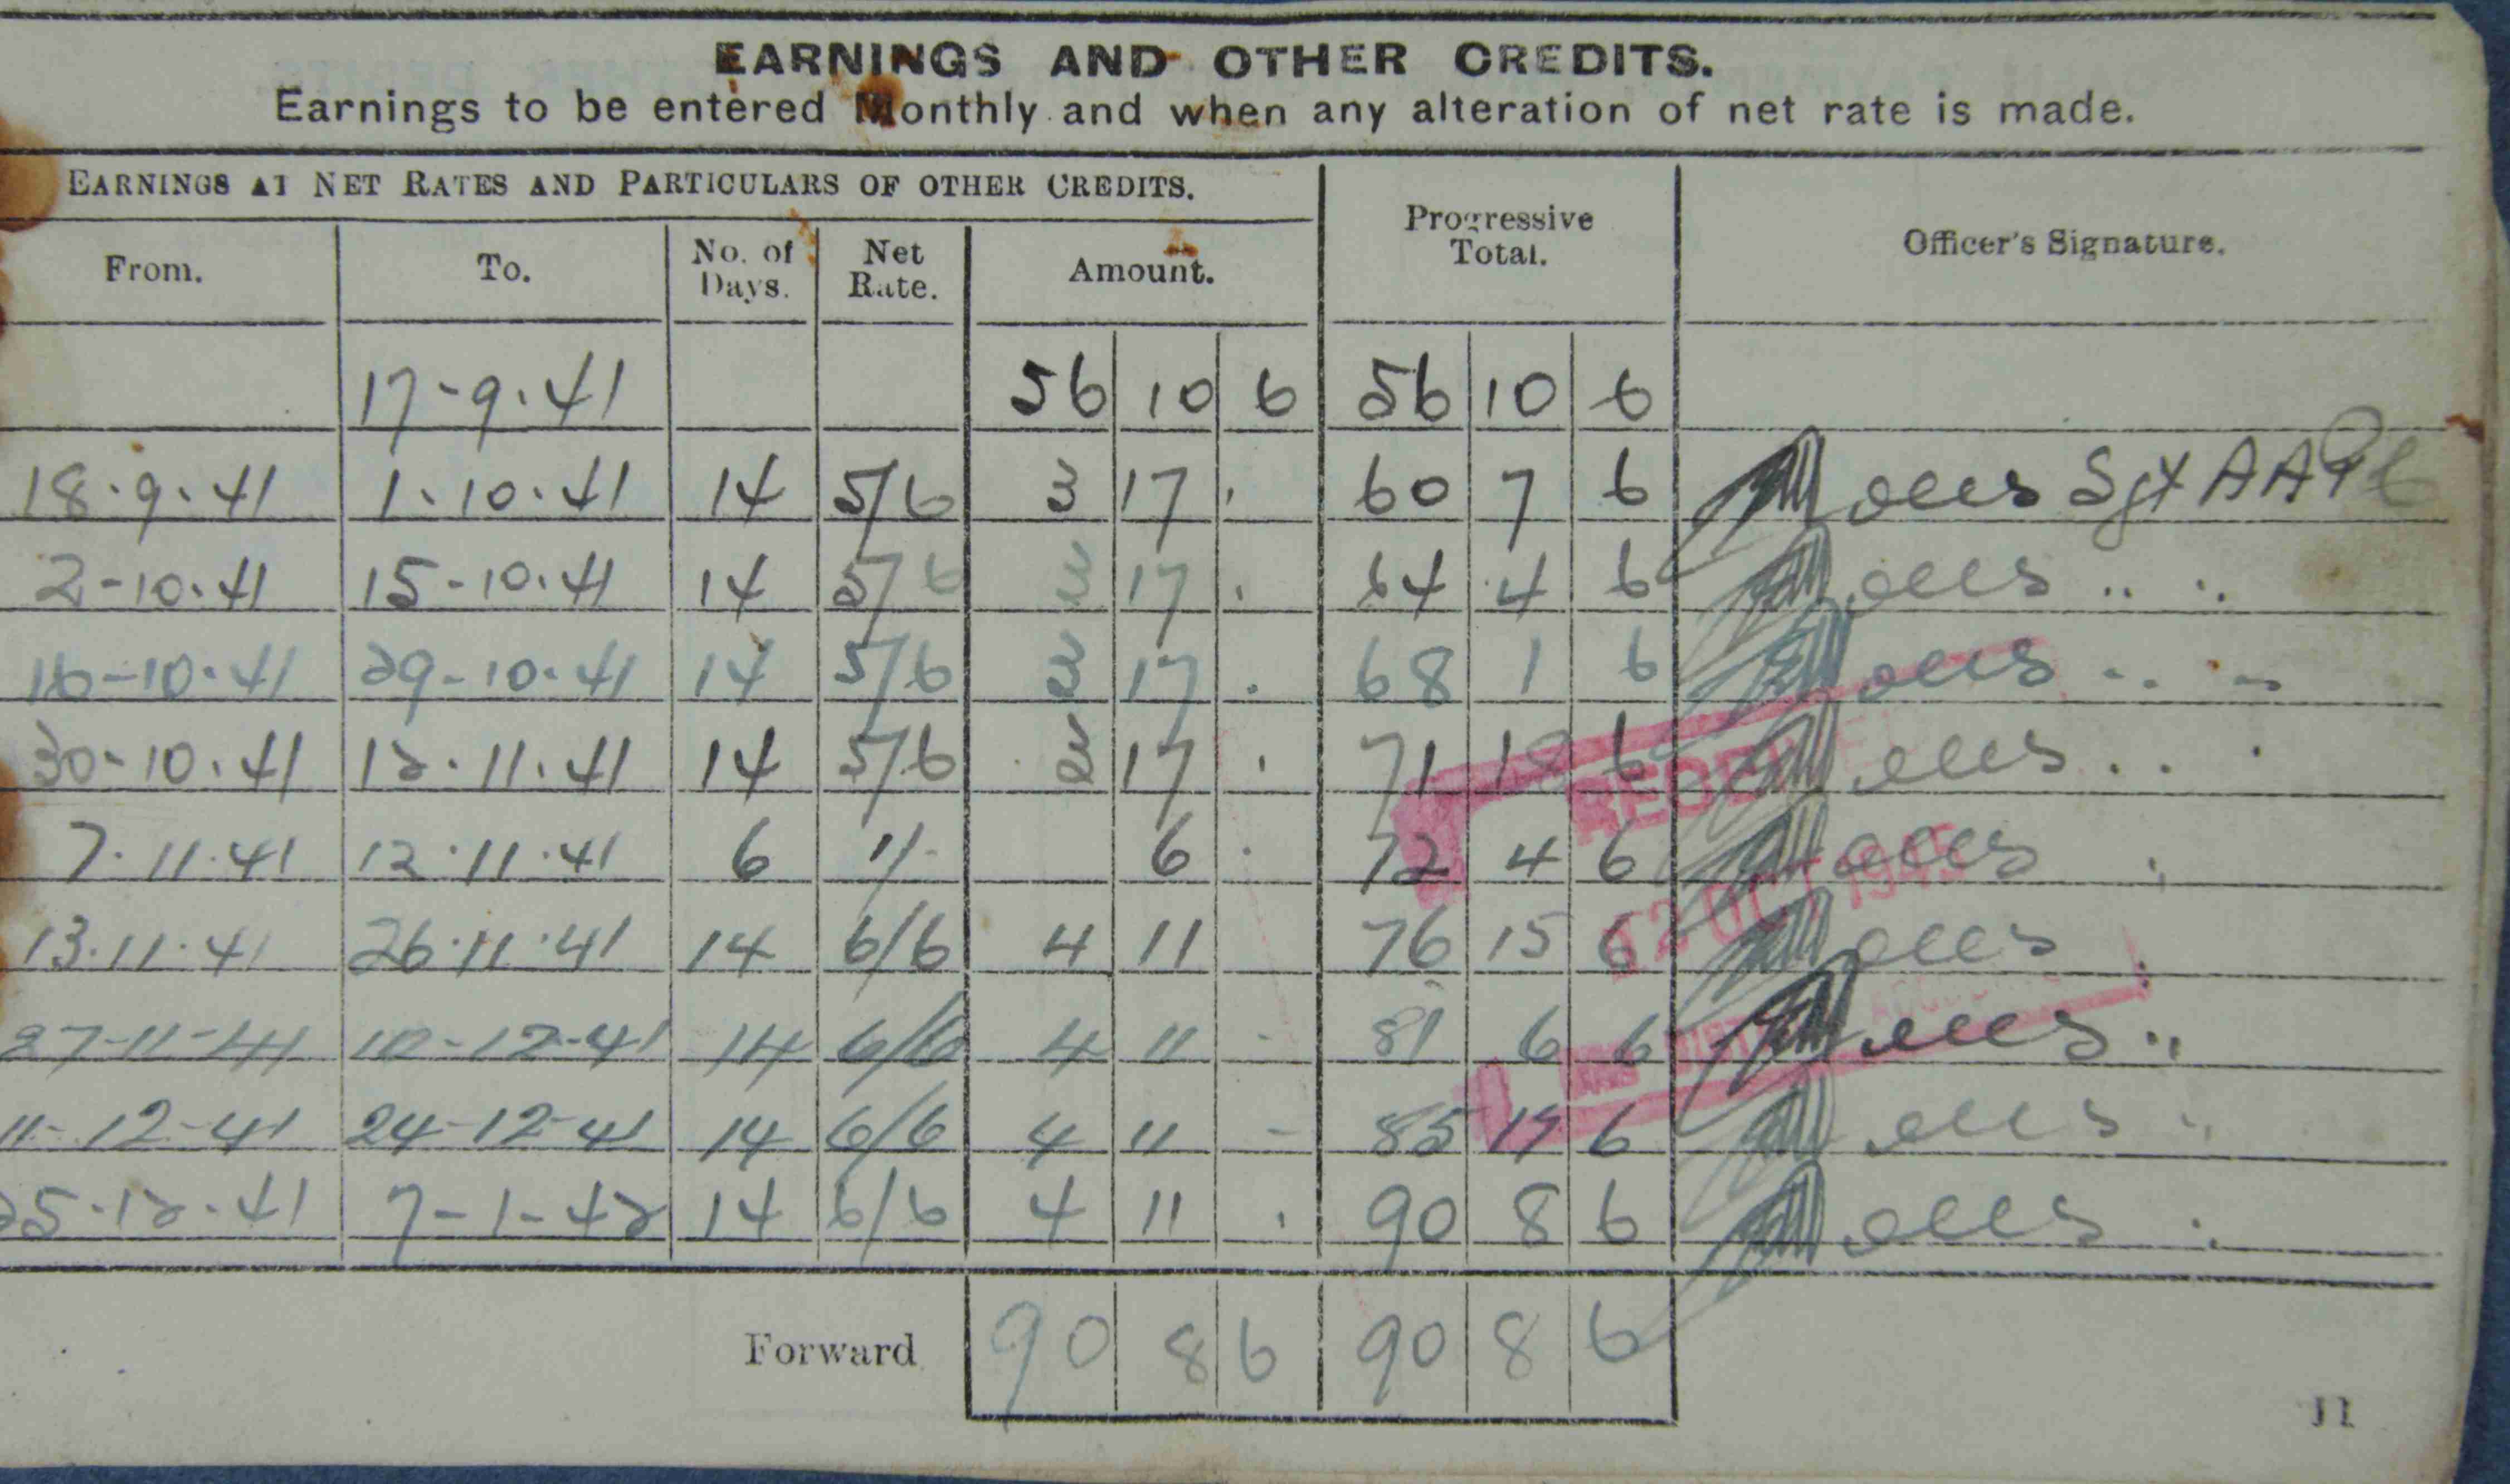 EARNINGS AND OTHER CREDITS.
Earnings to be entered Monthly and when any alteration of net rate is made.
EARNINGS AT NET RATES AND PARTICULARS OF OTHER CREDITS.
Progressive Total.
Officer's Signature.
From. To. No. of Days. Net Rate. Amount.
17-9.41 56 10 6 56 10 6
18.9.41 1.10.41 14 5/6 3 17 . 60 7 6 Sgt AAPC
2-10.41 15-10.41 14 5/6 3 17 . 64 4 6 .. ..
16-10.41 29-10.41 14 5/6 3 17 . 68 1 6 .. ..
30-10.41 12.11.41 14 5/6 3 17 . 71 18 6 .. .
7.11.41 12.11.41 6 1/- 6 . 72 4 6
13.11.41 26.11.41 14 6/6 4 11 76 15 6
27-11-41 10-12-41 14 6/6 4 11 - 81 6 6 ..
11-12-41 24-12-41 14 6/6 4 11 - 85 17 6 ..
25.12.41 7-1-42 14 6/6 4 11 . 90 8 6
Forward 90 8 6 90 8 6
OCT 1945
11